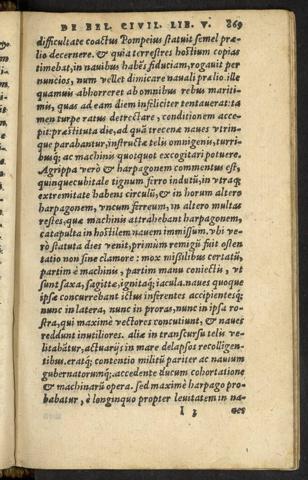 DE BEL. CIVIL. LIB. V. 869
difficultate coactus Pompeius statuit semel præ-
lio decernere. & quia terrestres hostium copias
timebat, in nauibus habēs fiduciam, rogauit per
nuncios, num vellet dimicare nauali prælio. ille
quamuis abhorreret ab omnibus rebus mariti-
mis, quas ad eam diem infeliciter tentauerat: ta
men turpe ratus detrectare, conditionem acce-
pit: præstituta die, ad quā trecenæ naues vtrin-
que parabantur, instructæ telis omnigenis, turri-
busq; ac machinis quotquot excogitari potuere.
Agrippa verò & harpagonem commentus est,
quinquecubitale tignum ferro indutū, in vtraq;
extremitate habens circulū, & in horum altero
harpagonem, vncum ferreum, in altero multas
restes, quæ machinis attrahebant harpagonem,
catapulta in hostilem nauem immissum. vbi ve-
rò statuta dies venit, primùm remigū fuit osten
tatio non sine clamore: mox missilibus certatū,
partim è machinis, partim manu coniectis, vt
sunt saxa, sagittæ, ignitaq; iacula. naues quoque
ipsæ concurrebant ictus inferentes accipientesq;
nunc in latera, nunc in proras, nunc in ipsa ro-
stra, qui maximè vectores concutiunt, & naues
reddunt inutiliores. aliæ in transcursu telis ve-
litabātur, actuarijs in mare delapsos recolligen-
tibus. eratq; contentio militū pariter ac nauium
gubernatorumq;: accedente ducum cohortatione
& machinarū opera. sed maximè harpago pro-
babatur, è longinquo propter leuitatem in na-
I 3 ues